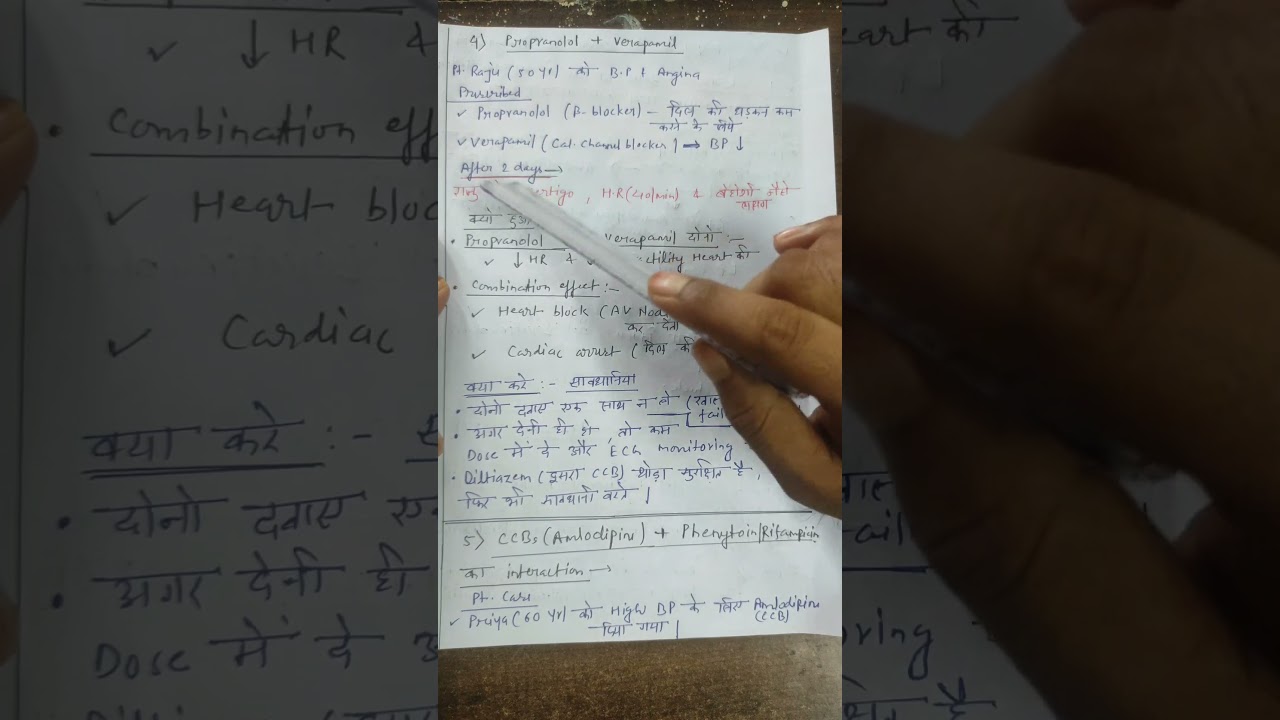 4) Propranolol + Verapamil
Pt. Raju (50 yr) को B.P + Angina
Prescribed
✓ Propranolol (B-blocker) – दिल की धडकन कम
करने के लिये
✓ Verapamil (Cal. Channel blocker) → BP ↓
After 2 days →
vertigo, H.R (40/min) & बेहोशी जैसे
लक्षण
क्यो
• Propranolol Verapamil दोनो :-
✓ ↓ HR & Heart की
• Combination effect :-
✓ Heart block (AV
कर देता
✓ Cardiac arrest (दिल की
क्या करे :- सावधानियां
• दोनो दवाए एक साथ न ले
• अगर देनी ही हो, तो कम
Dose में दे और ECG monitoring
• Diltiazem (दूसरा CCB) थोड़ा सुरक्षित है,
फिर भी सावधानी बरते |
5) CCBs (Amlodipine) + Phenytoin/Rifampicin
का interaction →
Pt. Case
✓ Priya (60 yr) को High BP के लिए Amlodipine
(CCB)
दिया गया |